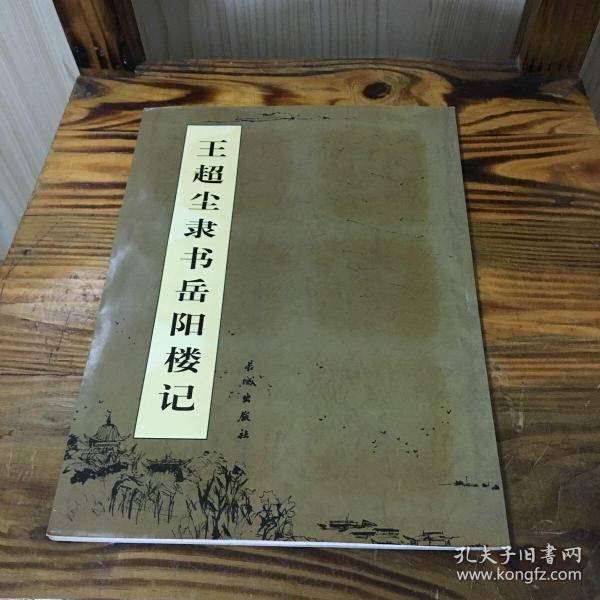 王超尘隶书岳阳楼记
长城出版社
孔夫子旧書网
www.kongfz.com